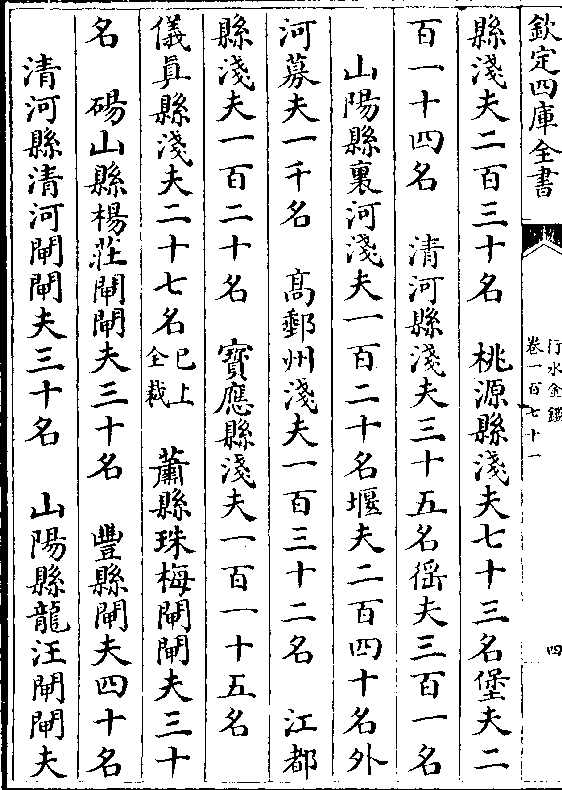 欽定四庫全書
行水金鑑
卷一百七十一
四
縣淺夫二百三十名　桃源縣淺夫七十三名堡夫二
百一十四名　清河縣淺夫三十五名徭夫三百一名
山陽縣裏河淺夫一百二十名堰夫二百四十名外
河募夫一千名　髙郵州淺夫一百三十二名　江都
縣淺夫一百二十名　寳應縣淺夫一百一十五名
儀真縣淺夫二十七名已上全裁　蕭縣珠梅閘閘夫三十
名　碭山縣楊莊閘閘夫三十名　豐縣閘夫四十名
清河縣清河閘閘夫三十名　山陽縣龍汪閘閘夫